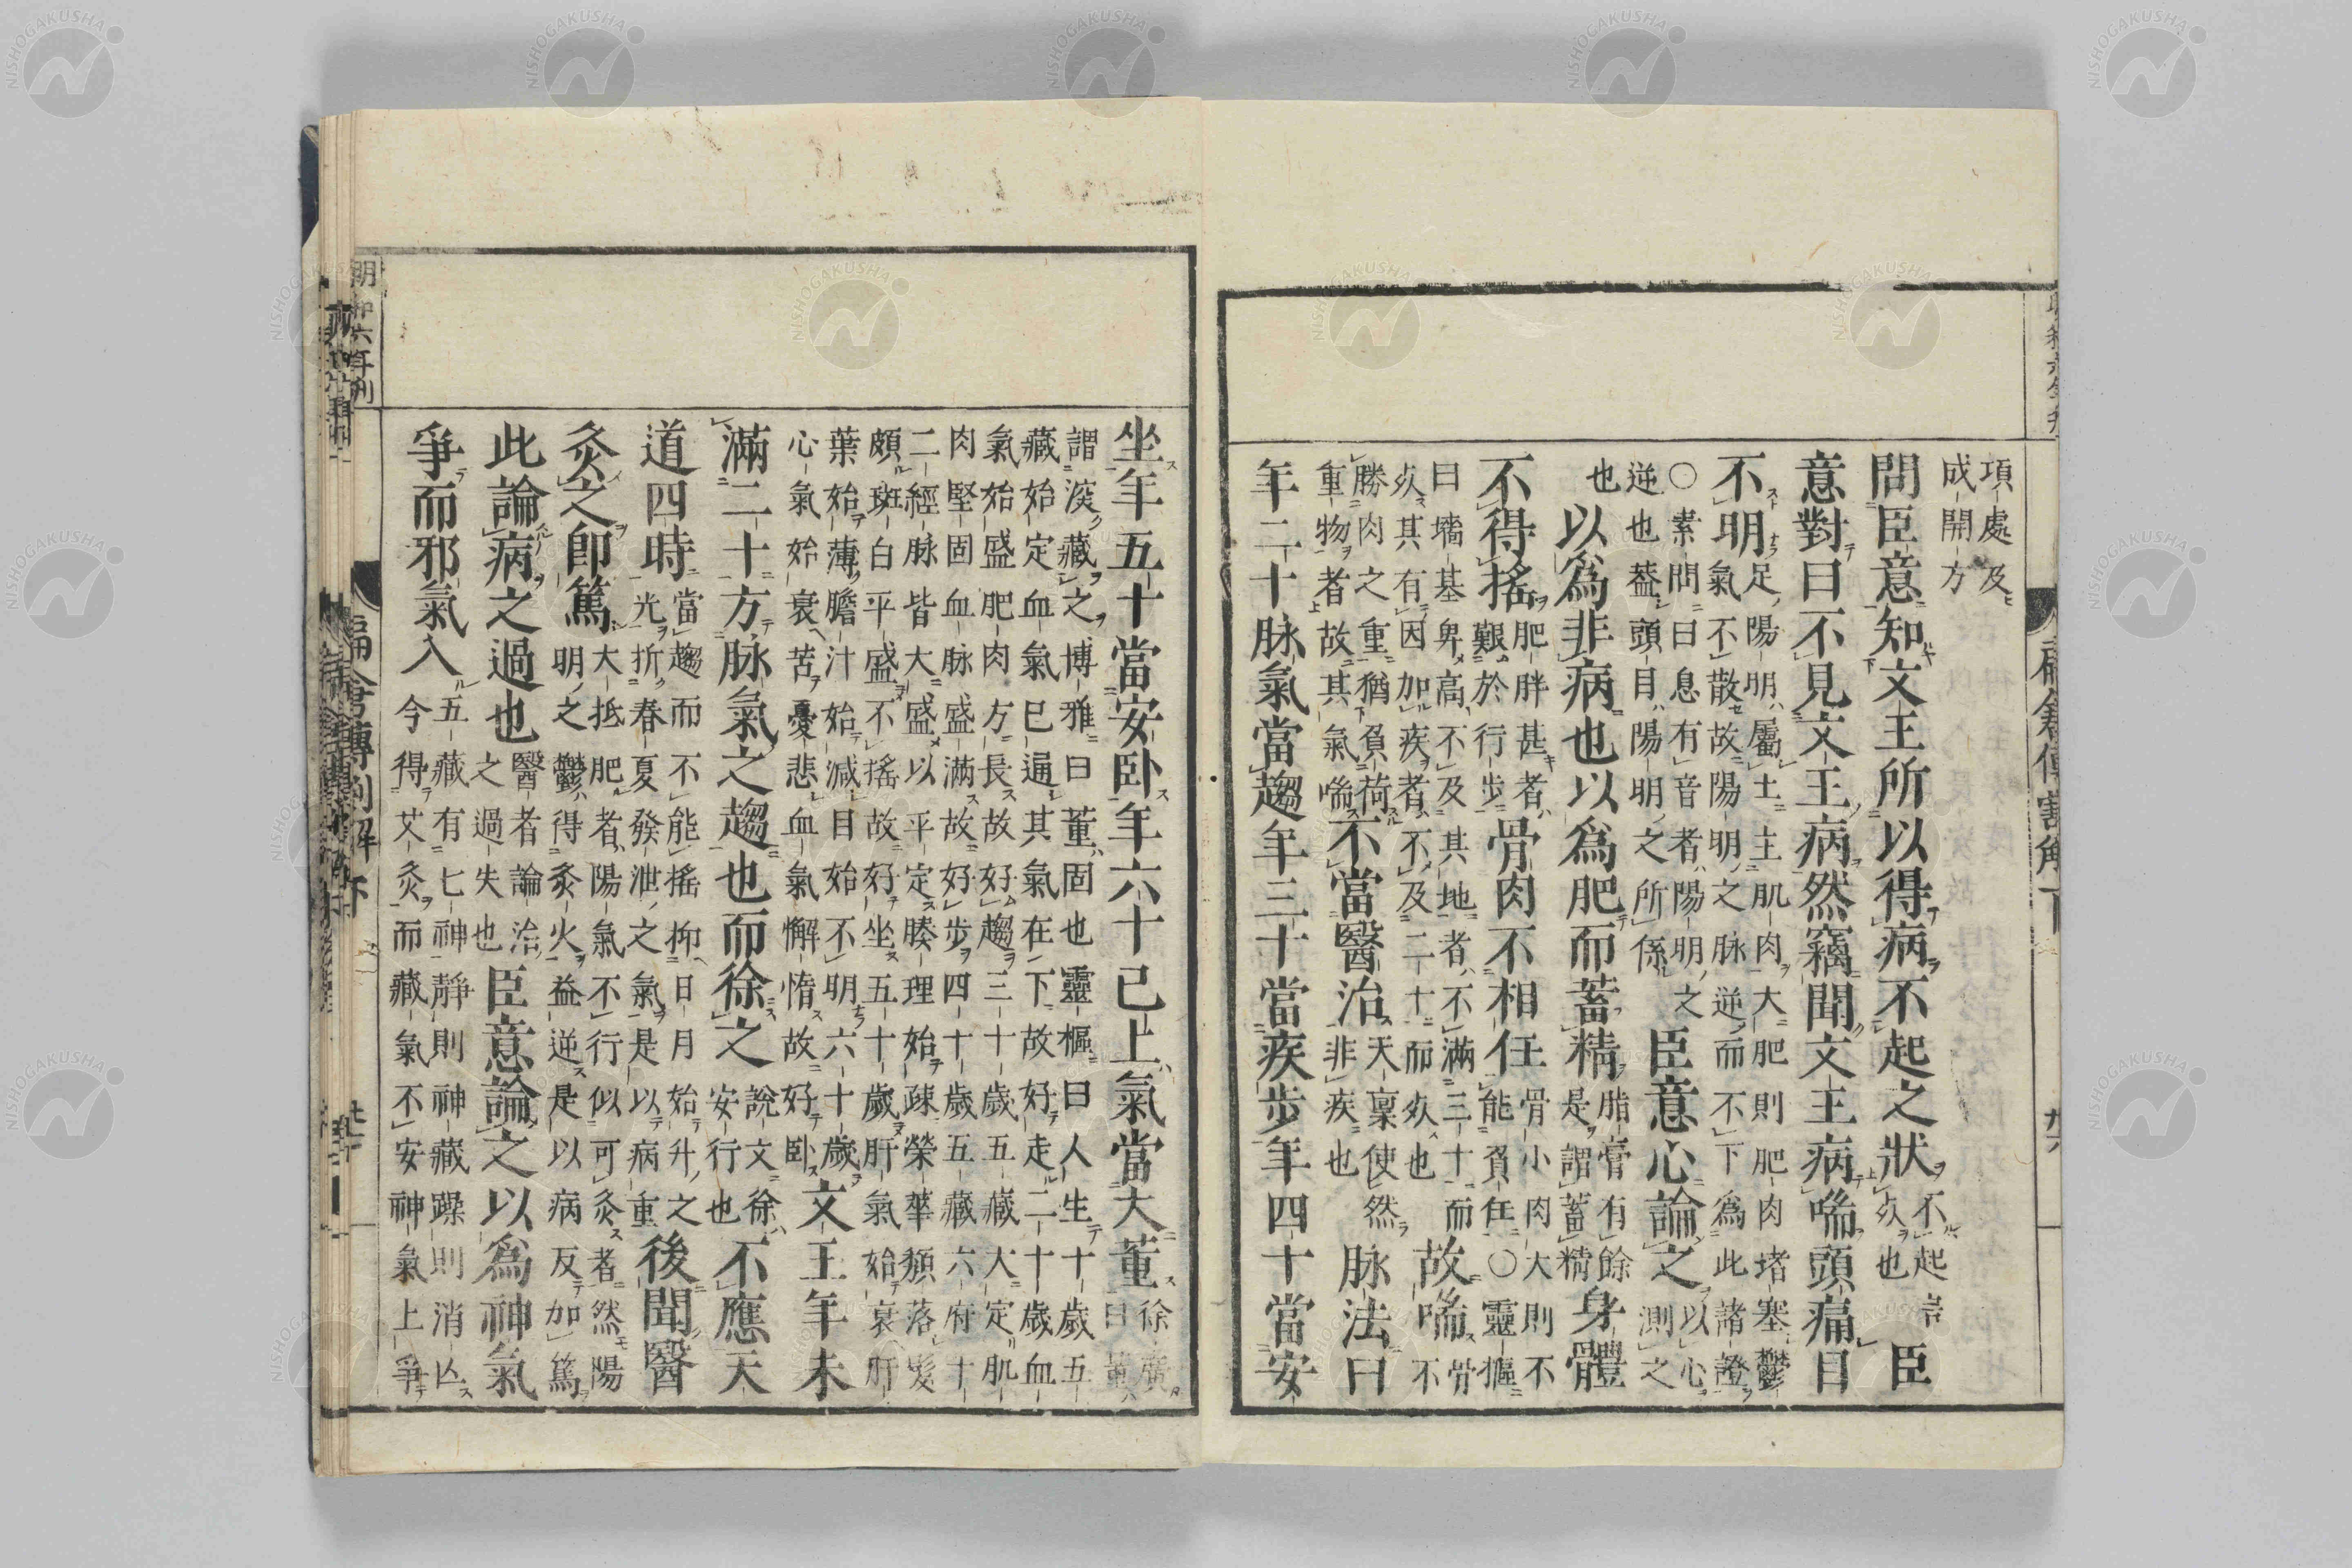 項處及
成開方
問臣意知文王所以得病不起之狀不起言
死也臣
意對曰不見文王病然竊聞文王病喘頭痛目
不明足陽明屬土主肌肉大肥則肥肉堵塞鬱
氣不散故陽明之脉逆而不下為此諸證
○素問曰息有音者陽明之
逆也葢頭目陽明之所係
也
臣意心論之以心
測之
以為非病也以為肥而蓄精脂膏有餘
是謂蓄精
身體
不得搖肥胖甚者
艱於行步
骨肉不相任骨小肉大則不
能負任○靈樞
曰墻基卑高不及其地者不滿三十而
死其有因加疾者不及二十而死也
故喘骨
不
勝肉之重猶負荷
重物者故其氣喘
不當醫治天稟使然
非疾也
脉法曰
年二十脉氣當趨年三十當疾步年四十當安
坐年五十當安卧年六十已上氣當大董徐廣
曰董
謂深藏之博雅曰董固也靈樞曰人生十歲五
藏始定血氣已通其氣在下故好走二十歲血
氣始盛肥肉方長故好趨三十歲五藏大定肌
肉堅固血脉盛滿故好步四十歲五藏六府十
二經脉皆大盛以平定腠理始疎榮華頹落髮
頗斑白平盛不搖故好坐五十歲肝氣始衰肝
葉始薄膽汁始減目始不明六十歲
心氣始衰苦憂悲血氣懈惰故好卧
文王年未
滿二十方脉氣之趨也而徐之說文徐
安行也
不應天
道四時當趨而不能搖抑日月始升之
光折春夏發泄之氣是以病重
後聞醫
灸之卽篤大抵肥者陽氣不行似可灸者然陽
明之鬱得灸火益逆是以病反加篤
此論病之過也醫者論治
之過失也
臣意論之以為神氣
爭而邪氣入五藏有七神靜則神藏躁則消亾
今得艾灸而藏氣不安神氣上爭
明和六年刋